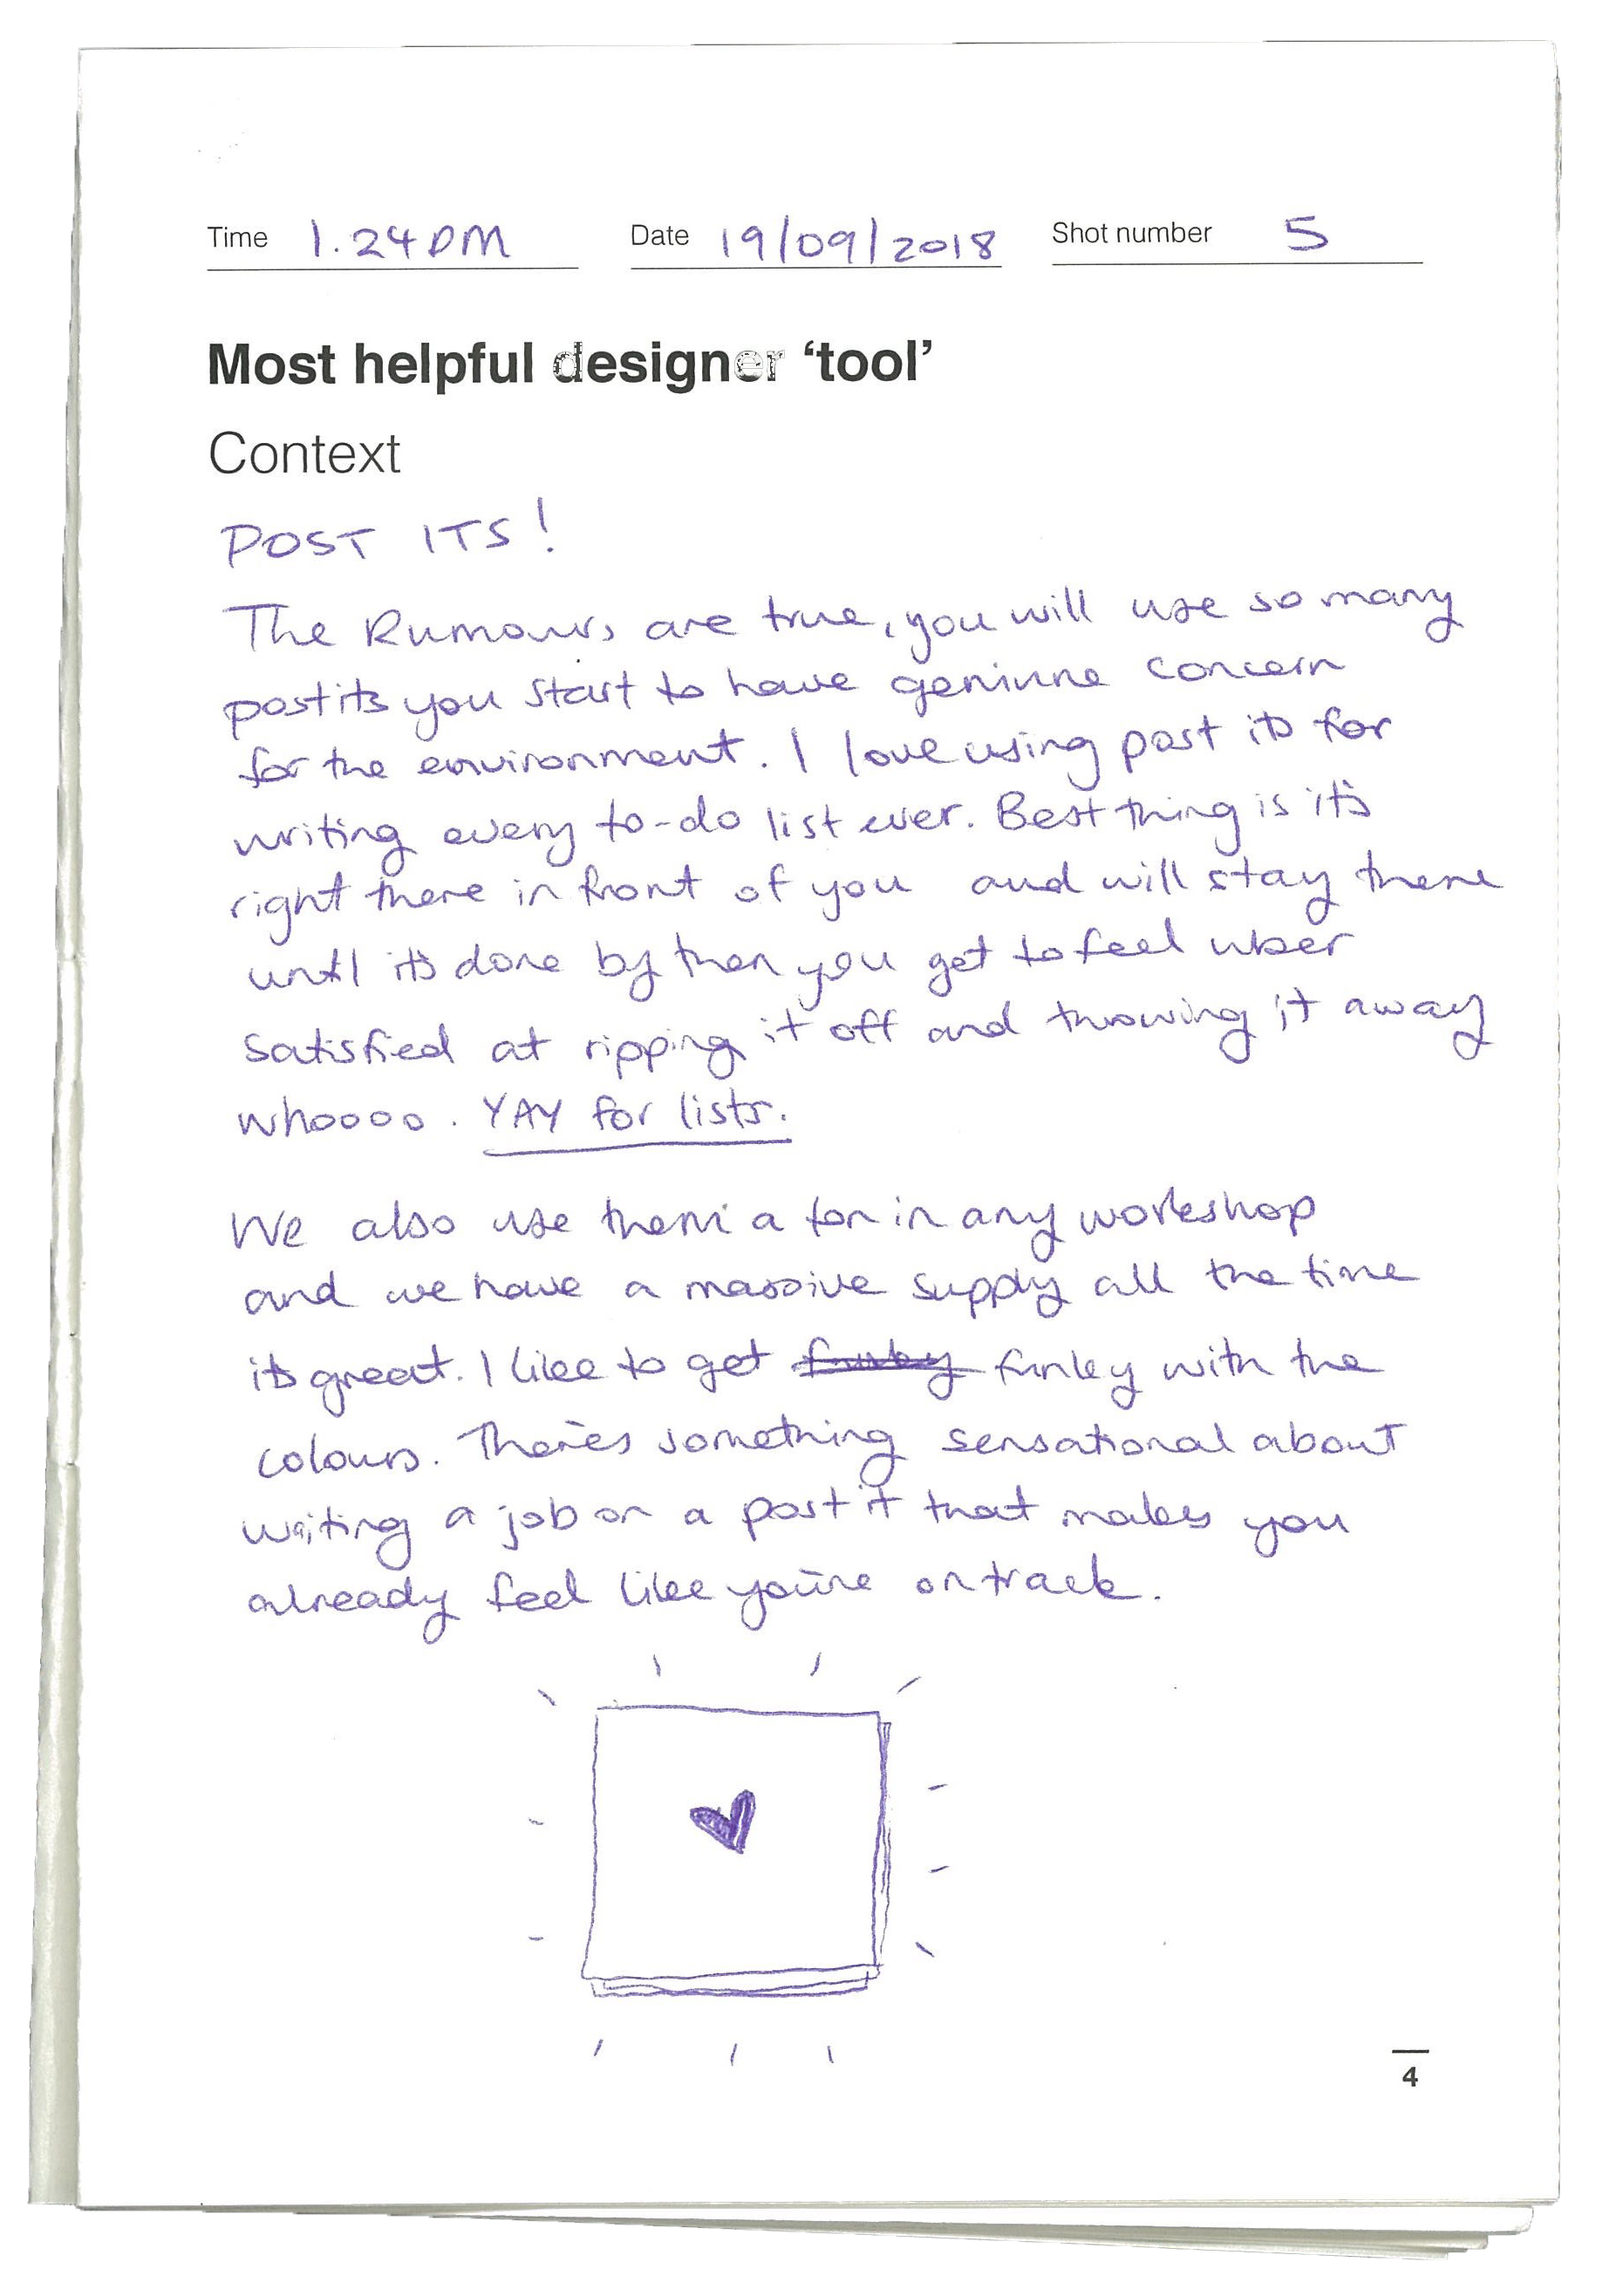 Time 1.24PM Date 19/09/2018 Shot number 5
Most helpful designer ‘tool’
Context
POST ITS!
The Rumours are true, you will use so many
postits you start to have geniune concern
for the environment. I love using post its for
writing every to-do list ever. Best thing is it's
right there in front of you and will stay there
until it's done by then you get to feel uber
satisfied at ripping it off and throwing it away
whoooo. YAY for lists.
We also use them a ton in any workshop
and we have a massive supply all the time
its great. I like to get funky funky with the
colours. There's something sensational about
writing a job on a post it that makes you
already feel like you're on track.
4